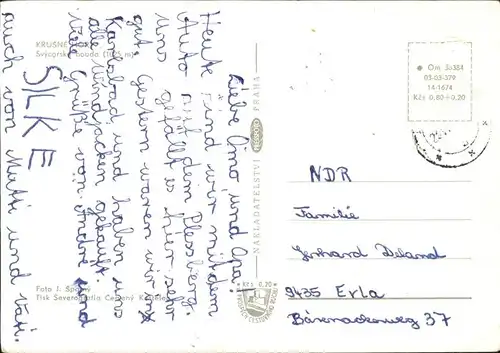 KRUŠNÉ
Švýcarská bouda (1025 m)
Liebe Oma, und Opa!
Heute sind wir mit dem
Auto auf dem Plessberg.
Uns gefällt es hier sehr
gut. Gestern waren wir in
Karlsbad und haben uns
alle Windjacken gekauft.
Viele Grüße von Andre und
SILKE
auch von Mutti und Vati.
Foto J.
Tisk Severografia Červený
NAKLADATELSTVÍ PRESSFOTO PRAHA
Kčs 0,20
Om 35384
03-03-379
14-1674
Kčs 0,80 + 0,20
NDR
Familie
Gerhard
9435 Erla
Bärenackerweg 37